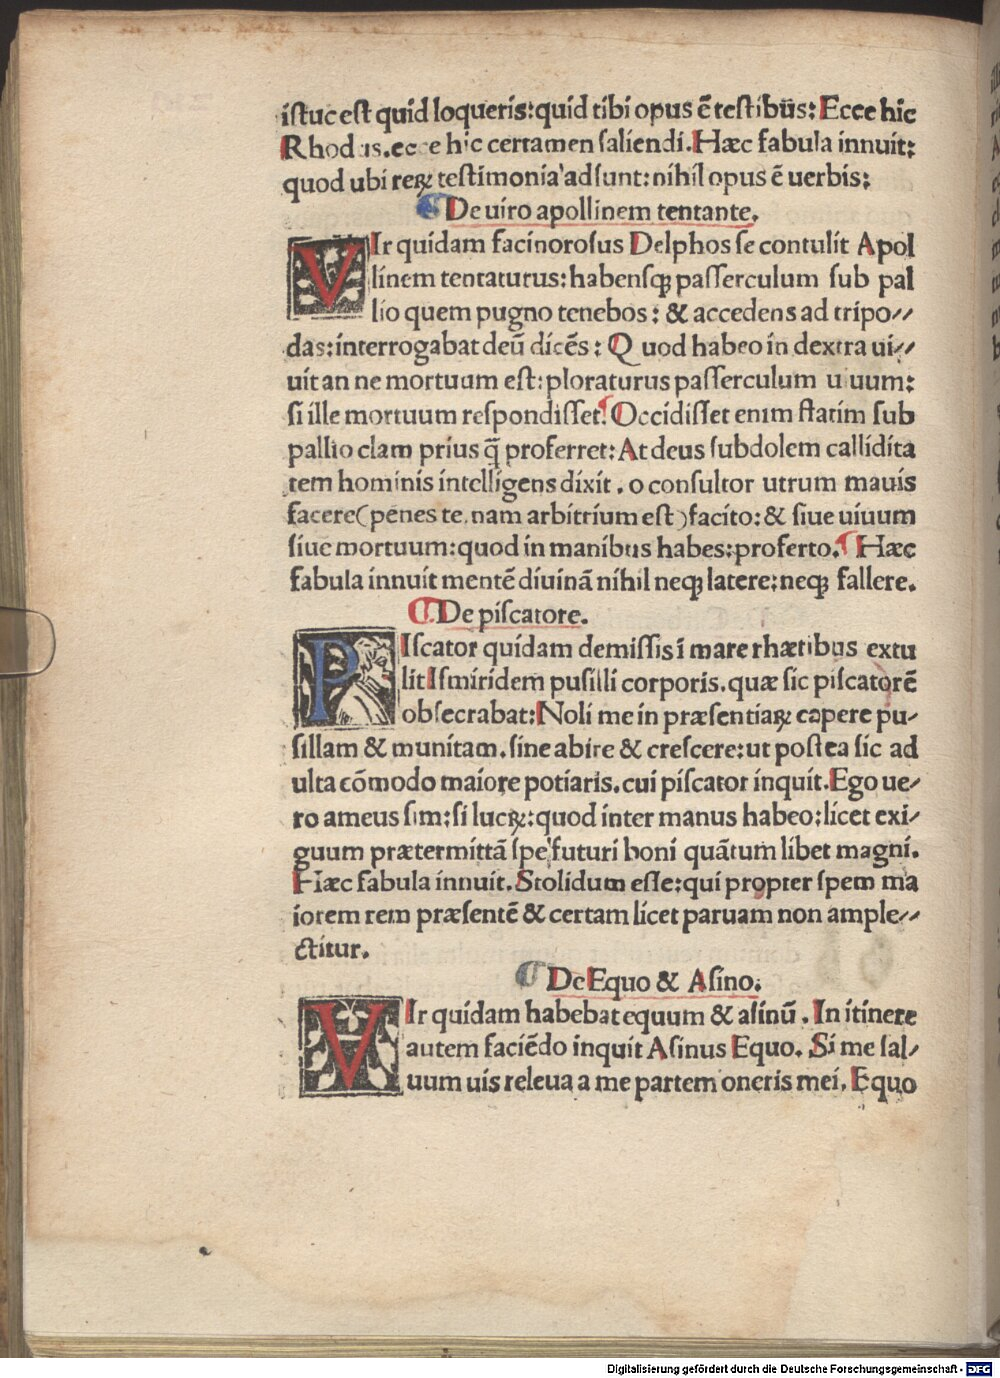 iſtuc eſt quid loqueris: quid tibi opus ē teſtibūs: Ecce hic
Rhodus. ecce hic certamen ſaliendi. Hæc fabula innuit:
quod ubi reꝝ teſtimonia adſunt: nihil opus ē uerbis:
De uiro apollinem tentante.
VIr quidam facinoroſus Delphos ſe contulit Apol
linem tentaturus: habenſqꝫ paſſerculum ſub pal
lio quem pugno tenebos: & accedens ad tripo//
das: interrogabat deū dicēs: Quod habeo in dextra ui//
uit an ne mortuum eſt: ploraturus paſſerculum uiuum:
ſi ille mortuum reſpondiſſet. Occidiſſet enim ſtatim ſub
pallio clam prius q̄ proferret: At deus ſubdolem callidita
tem hominis intelligens dixit. o conſultor utrum mauis
facere (penes te. nam arbitrium eſt) facito: & ſiue uiuum
ſiue mortuum: quod in manibus habes: proferto. Hæc
fabula innuit mentē diuinā nihil neqꝫ latere: neqꝫ fallere.
De piſcatore.
PIſcator quidam demiſſis ī mare rhætibus extu
lit Iſmiridem puſilli corporis. quæ ſic piſcatorē
obſecrabat: Noli me in præſentiaꝝ capere pu/
ſillam & munitam. ſine abire & creſcere: ut poſtea ſic ad
ulta cōmodo maiore potiaris. cui piſcator inquit. Ego ue/
ro ameus ſim: ſi lucꝝ: quod inter manus habeo: licet exi/
guum prætermittā ſpe futuri boni quātum libet magni.
Hæc fabula innuit. Stolidum eſſe: qui propter ſpem ma
iorem rem præſentē & certam licet paruam non ample//
ctitur.
De Equo & Aſino.
VIr quidam habebat equum & aſinū. In itinere
autem faciēdo inquit Aſinus Equo. Si me ſal/
uum uis releua a me partem oneris mei. Equo
Digitalisierung gefördert durch die Deutsche Forschungsgemeinschaft - DFG